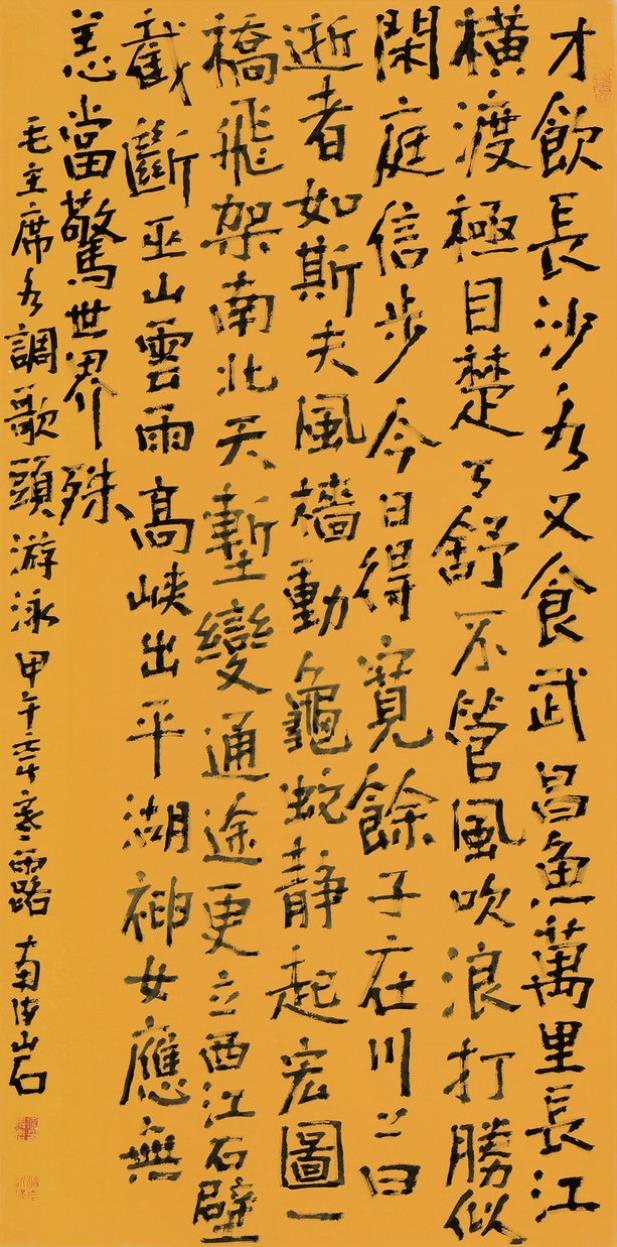 才飲長沙水又食武昌魚萬里長江
橫渡極目楚天舒不管風吹浪打勝似
閑庭信步今日得寬餘子在川上曰
逝者如斯夫風檣動龜蛇静起宏圖一
橋飛架南北天塹變通途更立西江石壁
截斷巫山雲雨高峽出平湖神女應無
恙當驚世界殊
毛主席水調歌頭游泳甲午寒露南海山石